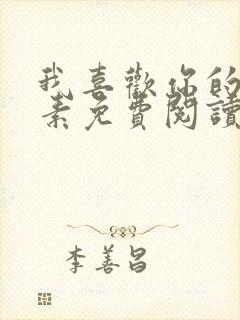 我喜歡你的
素免費閱讀
李善昌